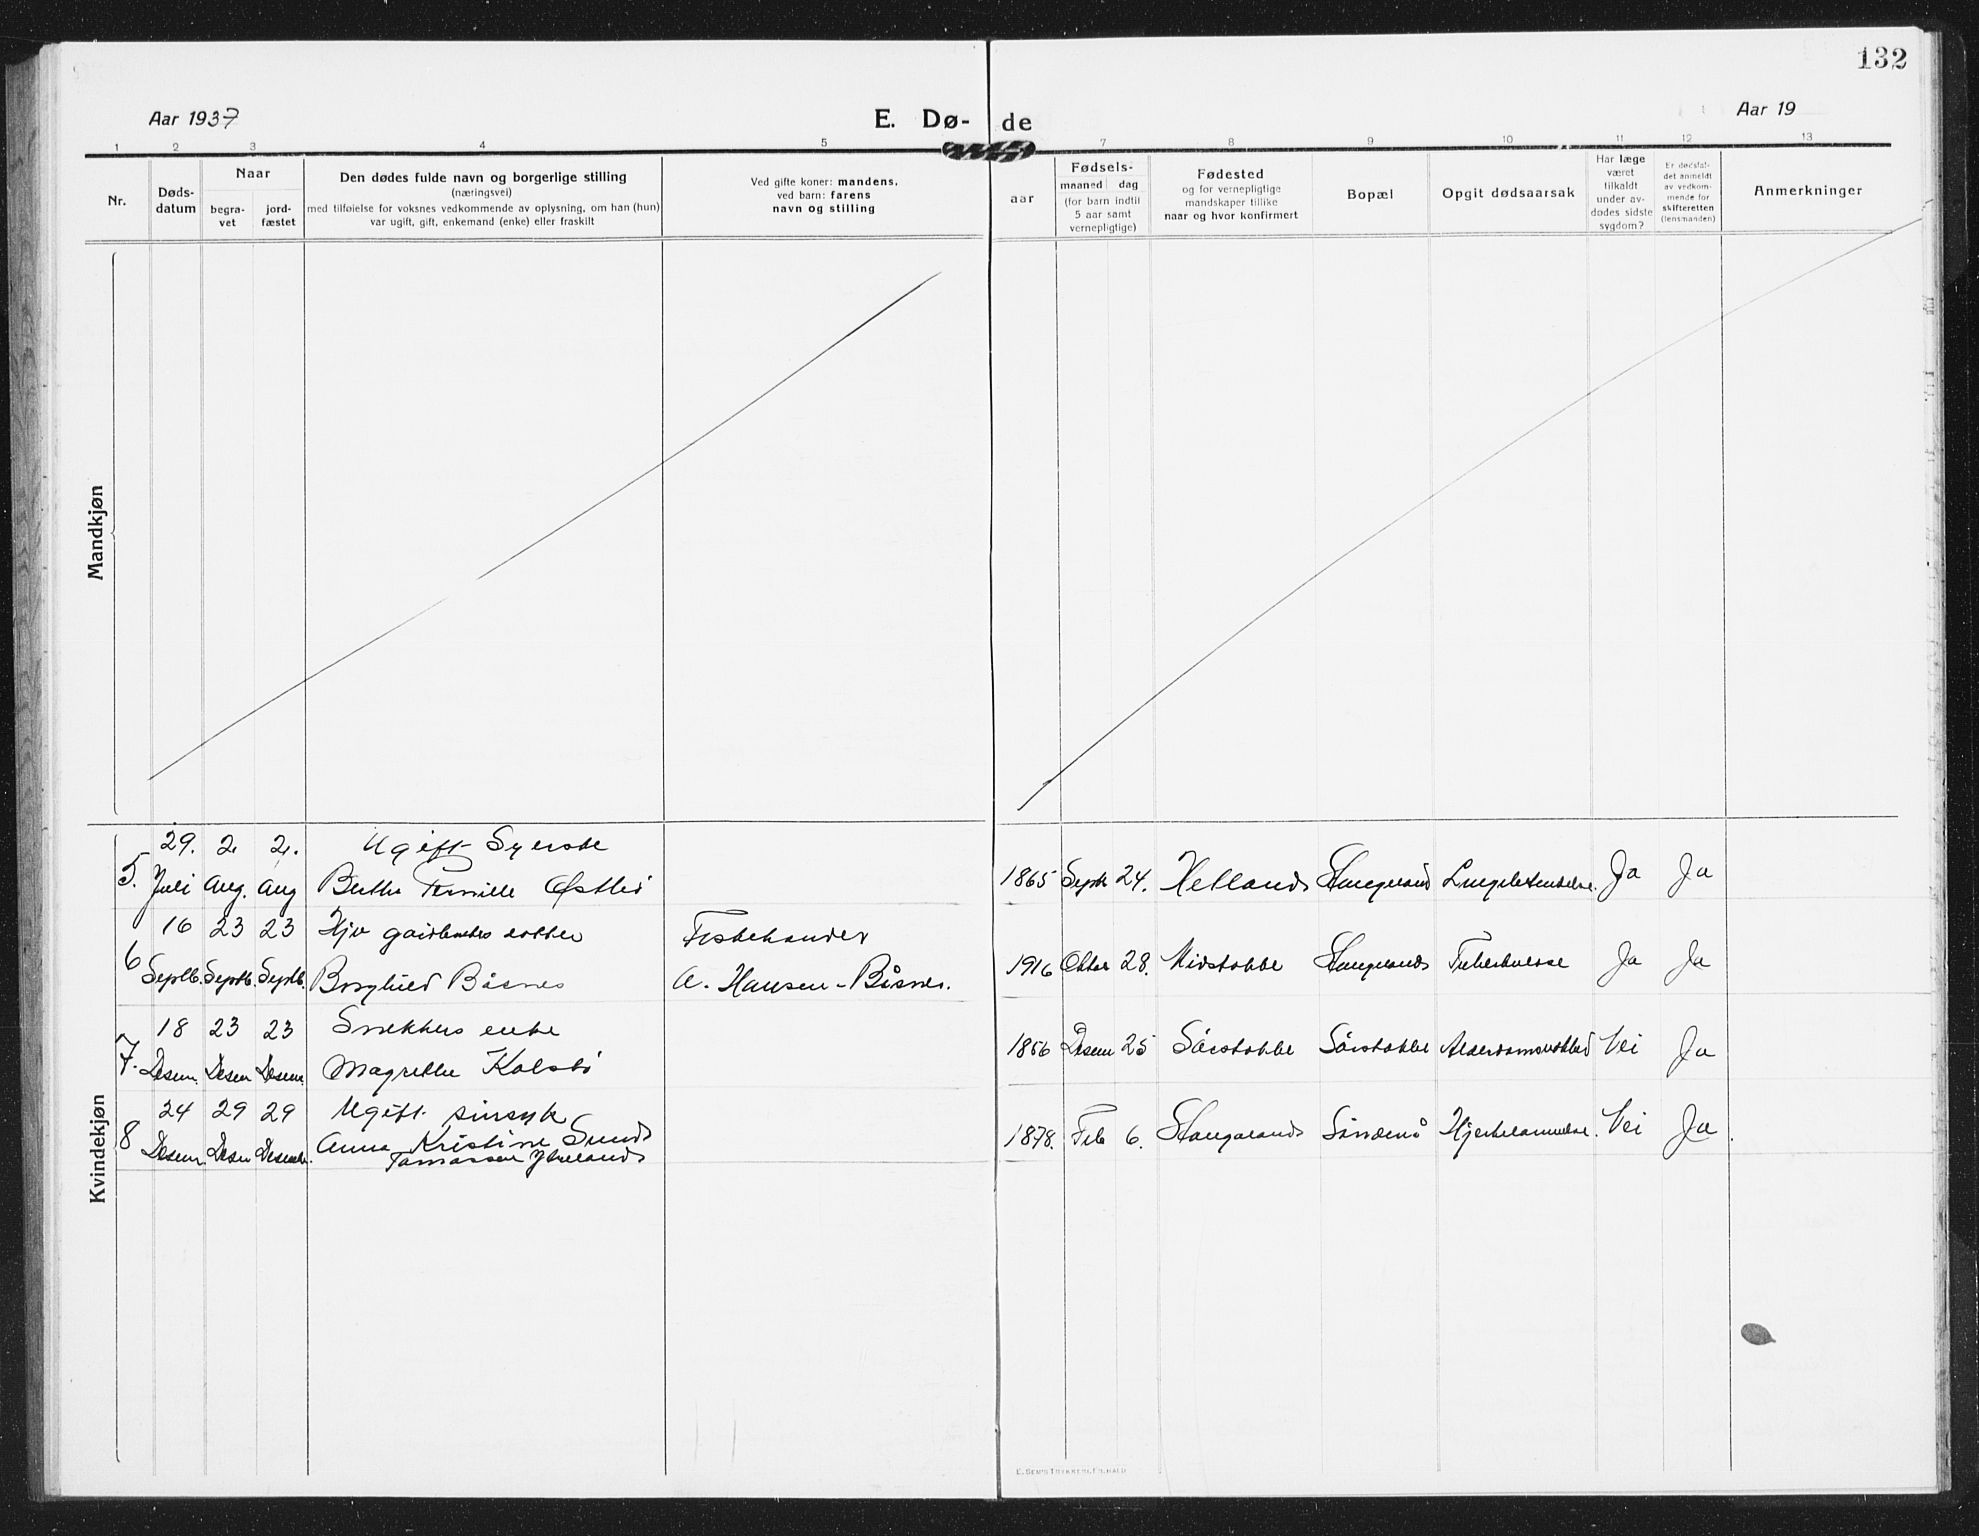 132
Aar 1937
E. Dø- de
Aar 19
1 2 3 4 5 7 8 9 10 11 12 13
Nr.
Døds-
datum
Naar
begra-
vet
jord-
fæstet
Den dødes fulde navn og borgerlige stilling
(næringsvei)
med tilføielse for voksnes vedkommende av oplysning, om han (hun)
var ugift, gift, enkemand (enke) eller fraskilt
Ved gifte koner: mandens,
ved barn: farens
navn og stilling
aar
Fødsels-
maaned dag
(for barn indtil
5 aar samt
vernepligtige)
Fødested
og for vernepligtige
mandskaper tillike
naar og hvor konfirmert
Bopæl
Opgit dødsaarsak
Har læge
været
tilkaldt
under av-
dødes sidste
sygdom?
Er dødsfal-
det anmeldt
av vedkom-
mende for
skifteretten
(lensmanden)
Anmerkninger
Mandkjøn
Kvindekjøn
29. 2. 2. Ugift Syerske
5. Juli Aug. Aug Berthe Pernille 1865 Septr 24. Helland Ja Ja
16 23 23 Fiskehandler
6 Septb. Septb. Septb. Borghild Båsnes A. Hansen - Båsnes. 1916 Oktbr 28. Midstokke Tuberkulose Ja Ja
18 23 23 Snekkers enke
7. Desem. Desem Desem. Magrethe Kolstø 1856 Desem 25 Sørstokke Sørstokke Nei Ja
24 29 29 Ugift sinsyk
8 Desem. Desem Desemb. Anna Kristine Sund 1878. Feb 6. Nei Ja.
Tomassen
E. SEM'S TRYKKERI, FR.HALD